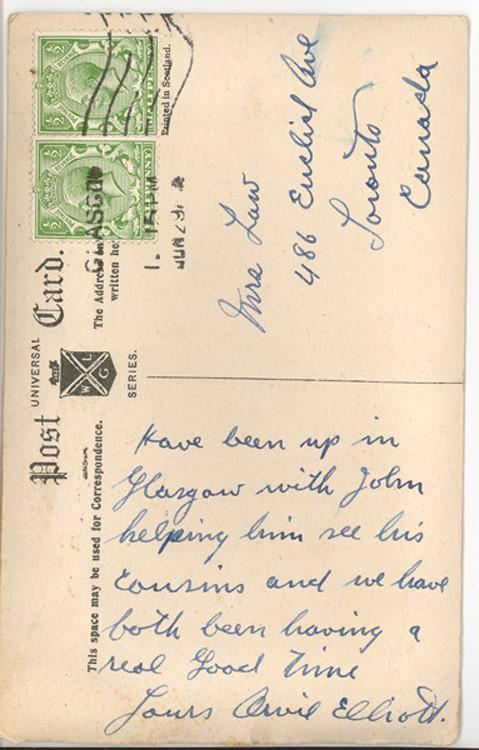 UNIVERSAL
Post Card.
W G L
SERIES.
Printed in Scotland.
HALFPENNY
The Address
written
GLASGOW
15 PM
JUN 29
This space may be used for Correspondence.
Mrs Law
486 Euclid Ave
Toronto
Canada
Have been up in
Glasgow with John
helping him see his
Cousins and we have
both been having a
real Good Time
Yours Orvil Elliott.